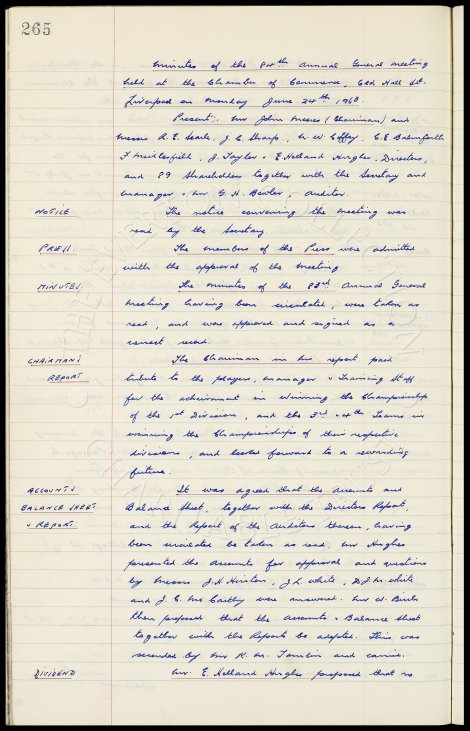 265
Minutes of the 84th Annual General Meeting
held at the Chamber of Commerce, Old Hall St.
Liverpool on Monday June 24th 1963.
Present: Mr John Moores (Chairman) and
Messrs R. E. Searle, J. C. Sharp, C. E. Balmforth
F. Micklesfield, J. Taylor & E. Holland Hughes, Directors,
and 89 Shareholders together with the Secretary and
Manager & Mr G. H. Bowler, Auditor.
NOTICE The notice convening the meeting was
read by the Secretary.
PRESS. The members of the Press were admitted
with the approval of the meeting
MINUTES. The minutes of the 83rd Annual General
Meeting having been circulated, were taken as
read, and were approved and signed as a
correct record.
CHAIRMAN'S The Chairman in his report paid
REPORT tribute to the players, manager & Training Staff
for the achievement in winning the Championship
of the 1st Division, and the 3rd & 4th Teams in
winning the Championships of their respective
divisions, and looked forward to a rewarding
future.
ACCOUNTS It was agreed that the Accounts and
BALANCE SHEET Balance Sheet, together with the Directors Report,
& REPORT. and the Report of the Auditors thereon, having
been circulated be taken as read. Mr Hughes
presented the Accounts for approval and questions
by Messrs J. H. Hinston, J. L. White, D. S. M. White
and J. C. Mc Carthy were answered. Mr W. Birch
then proposed that the Accounts & Balance Sheet
together with the Reports be adopted. This was
seconded by Mr R. M. Tomlin and carried.
DIVIDEND Mr. E. Holland Hughes proposed that no